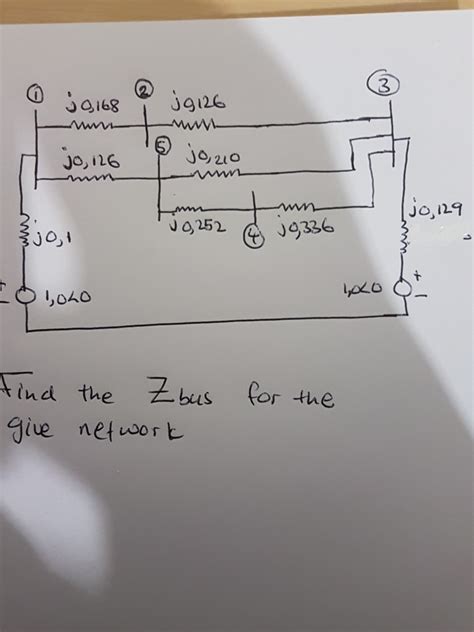 ① j0,168 ② j0,126 ③
j0,126 ⑤ j0,210
j0,252 ④ j0,336
j0,1 j0,129
- 1,0∠0 1,0∠0 + -
Find the Zbus for the
give network